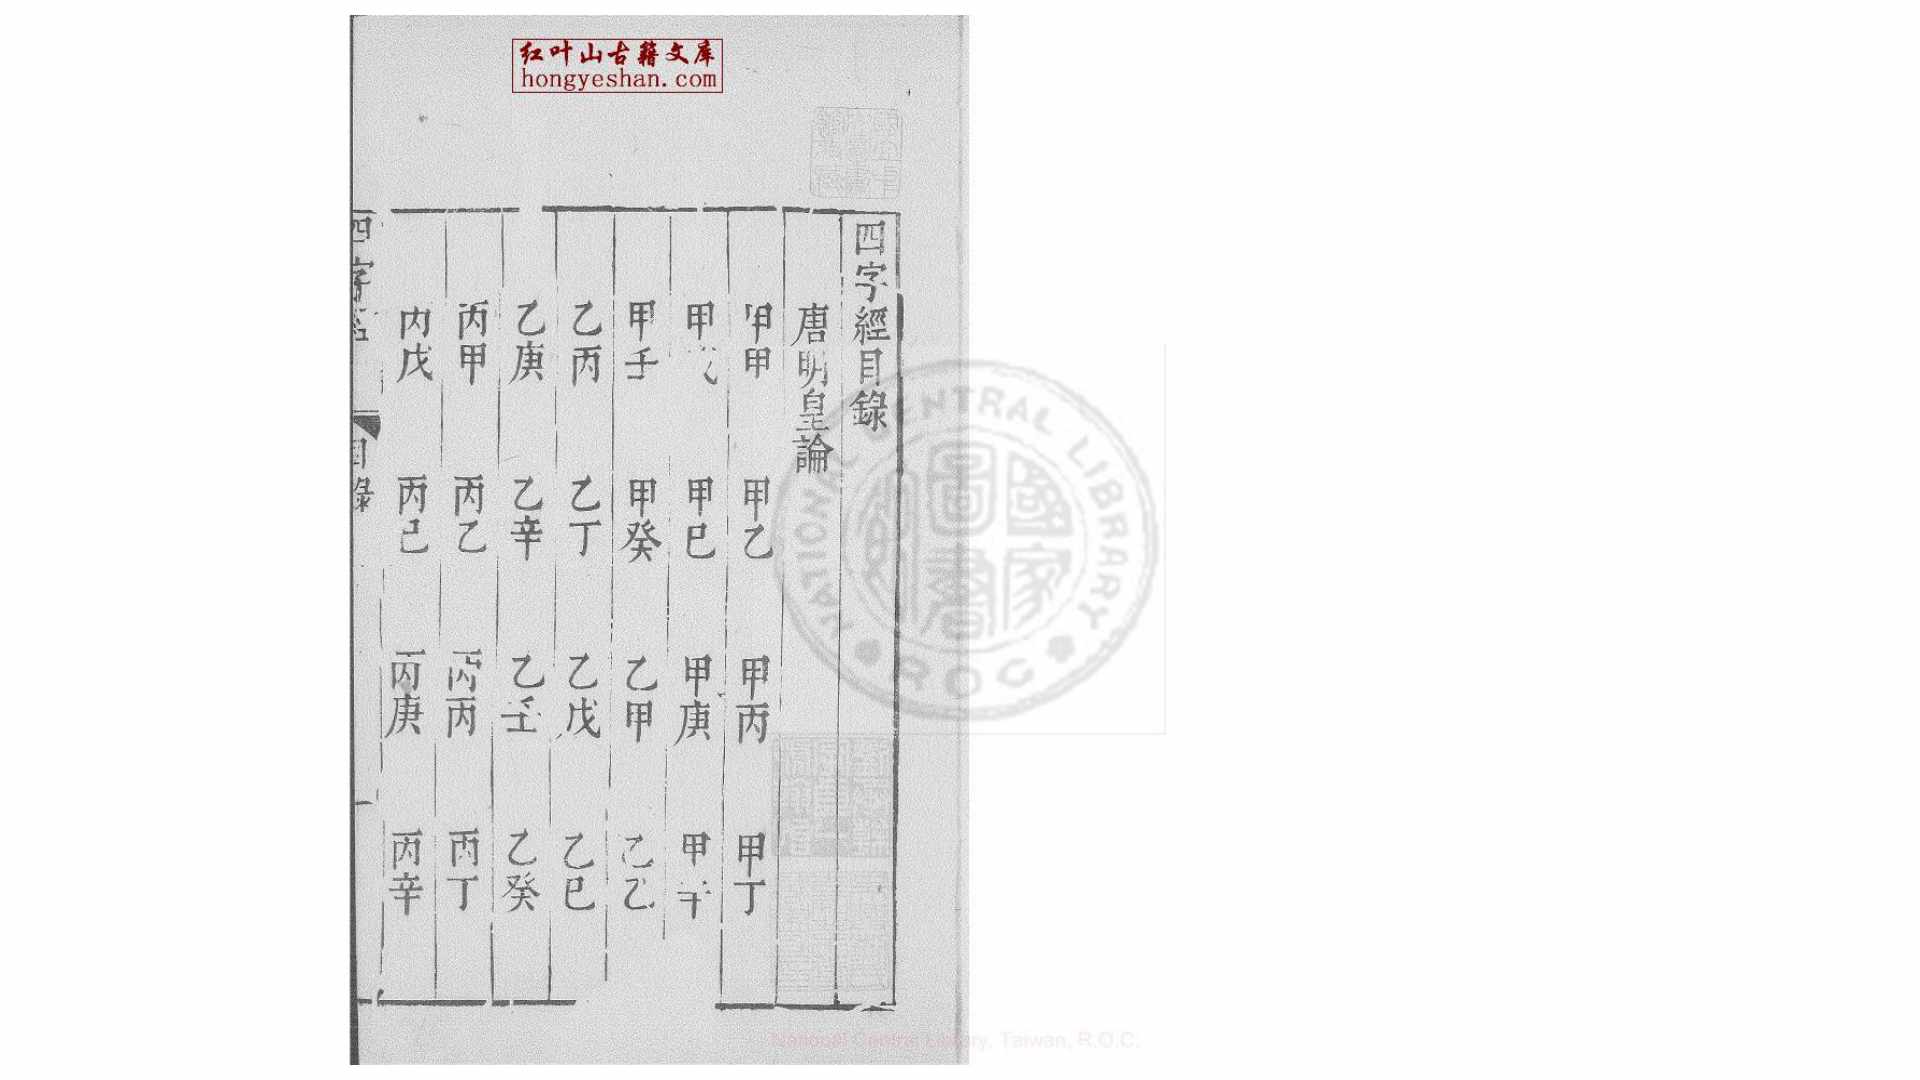 红叶山古籍文库
hongyeshan.com
四字經目錄
唐明皇論
甲甲 甲乙 甲丙 甲丁
甲 甲巳 甲庚 甲辛
甲壬 甲癸 乙甲 乙乙
乙丙 乙丁 乙戊 乙巳
乙庚 乙辛 乙壬 乙癸
丙甲 丙乙 丙丙 丙丁
丙戊 丙己 丙庚 丙辛
四字經 目錄
NATIONAL CENTRAL LIBRARY
R.O.C
國家圖書館
National Central Library, Taiwan, R.O.C.